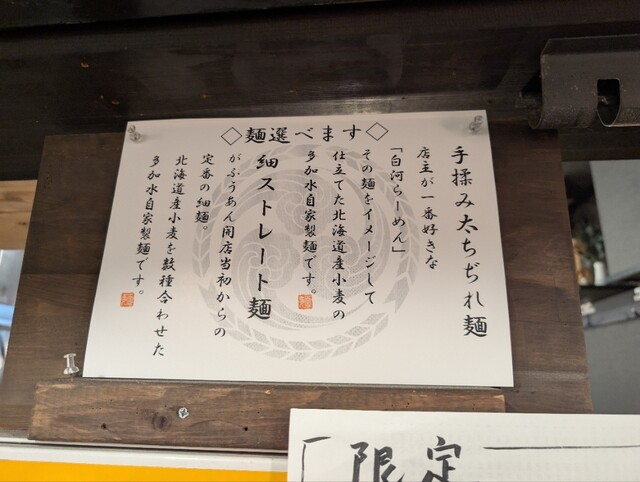 ◇麺選べます◇
手揉み太ちぢれ麺
店主が一番好きな
「白河らーめん」
その麺をイメージして
仕立てた北海道産小麦の
多加水自家製麺です。
細ストレート麺
がふうあん開店当初からの
定番の細麺。
北海道産小麦を数種合わせた
多加水自家製麺です。
限定